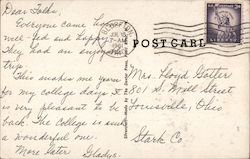 Dear Folks,
Everyone came home
well-fed and happy.
They had an enjoyable
trip.
This makes me yearn
for my college days. It
is very pleasant to be
back. The college is such
a wonderful one.
More later
Gladys.
POST CARD
JUL 15
7-AM
Mrs. Floyd Gotter
801 S. Mill Street
Louisville, Ohio
Stark Co.